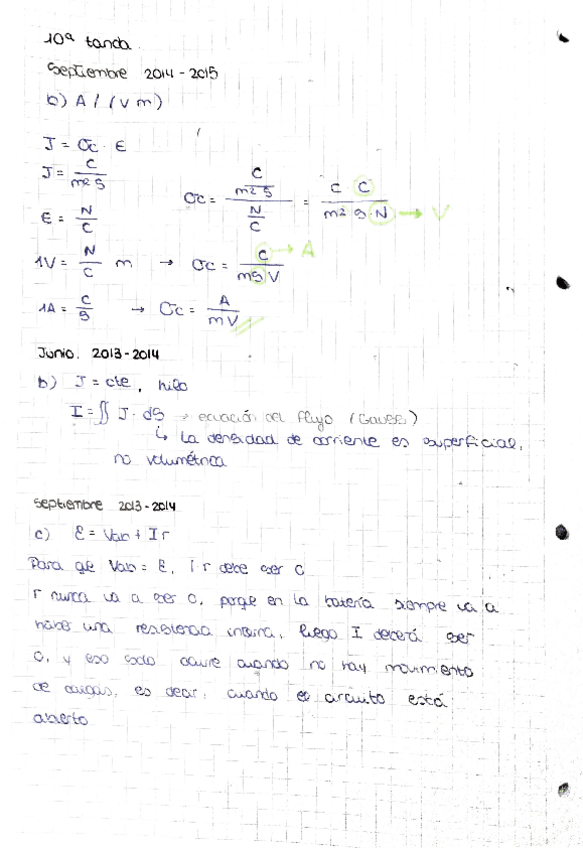 10ª tanda.
Septiembre 2014-2015
b) A / (V m)
J = σc · E
J = C / m² s
σc = (C / m² s) / (N / C) = C C / m² s · N → V
E = N / C
1V = N / C m → σc = C / m s V → A
1A = C / s → σc = A / m V
Junio. 2013-2014
b) J = cte, hilo
I = ∬ J · ds → ecuación del flujo (Gauss)
↳ La densidad de corriente es superficial,
no volumétrica
Septiembre 2013-2014
c) ε = Vab + I r
Para que Vab = ε, I r debe ser 0
r nunca va a ser 0, porque en la batería siempre va a
haber una resistencia interna, luego I deberá ser
0, y eso solo ocurre cuando no hay movimiento
de cargas, es decir, cuando el circuito está
abierto